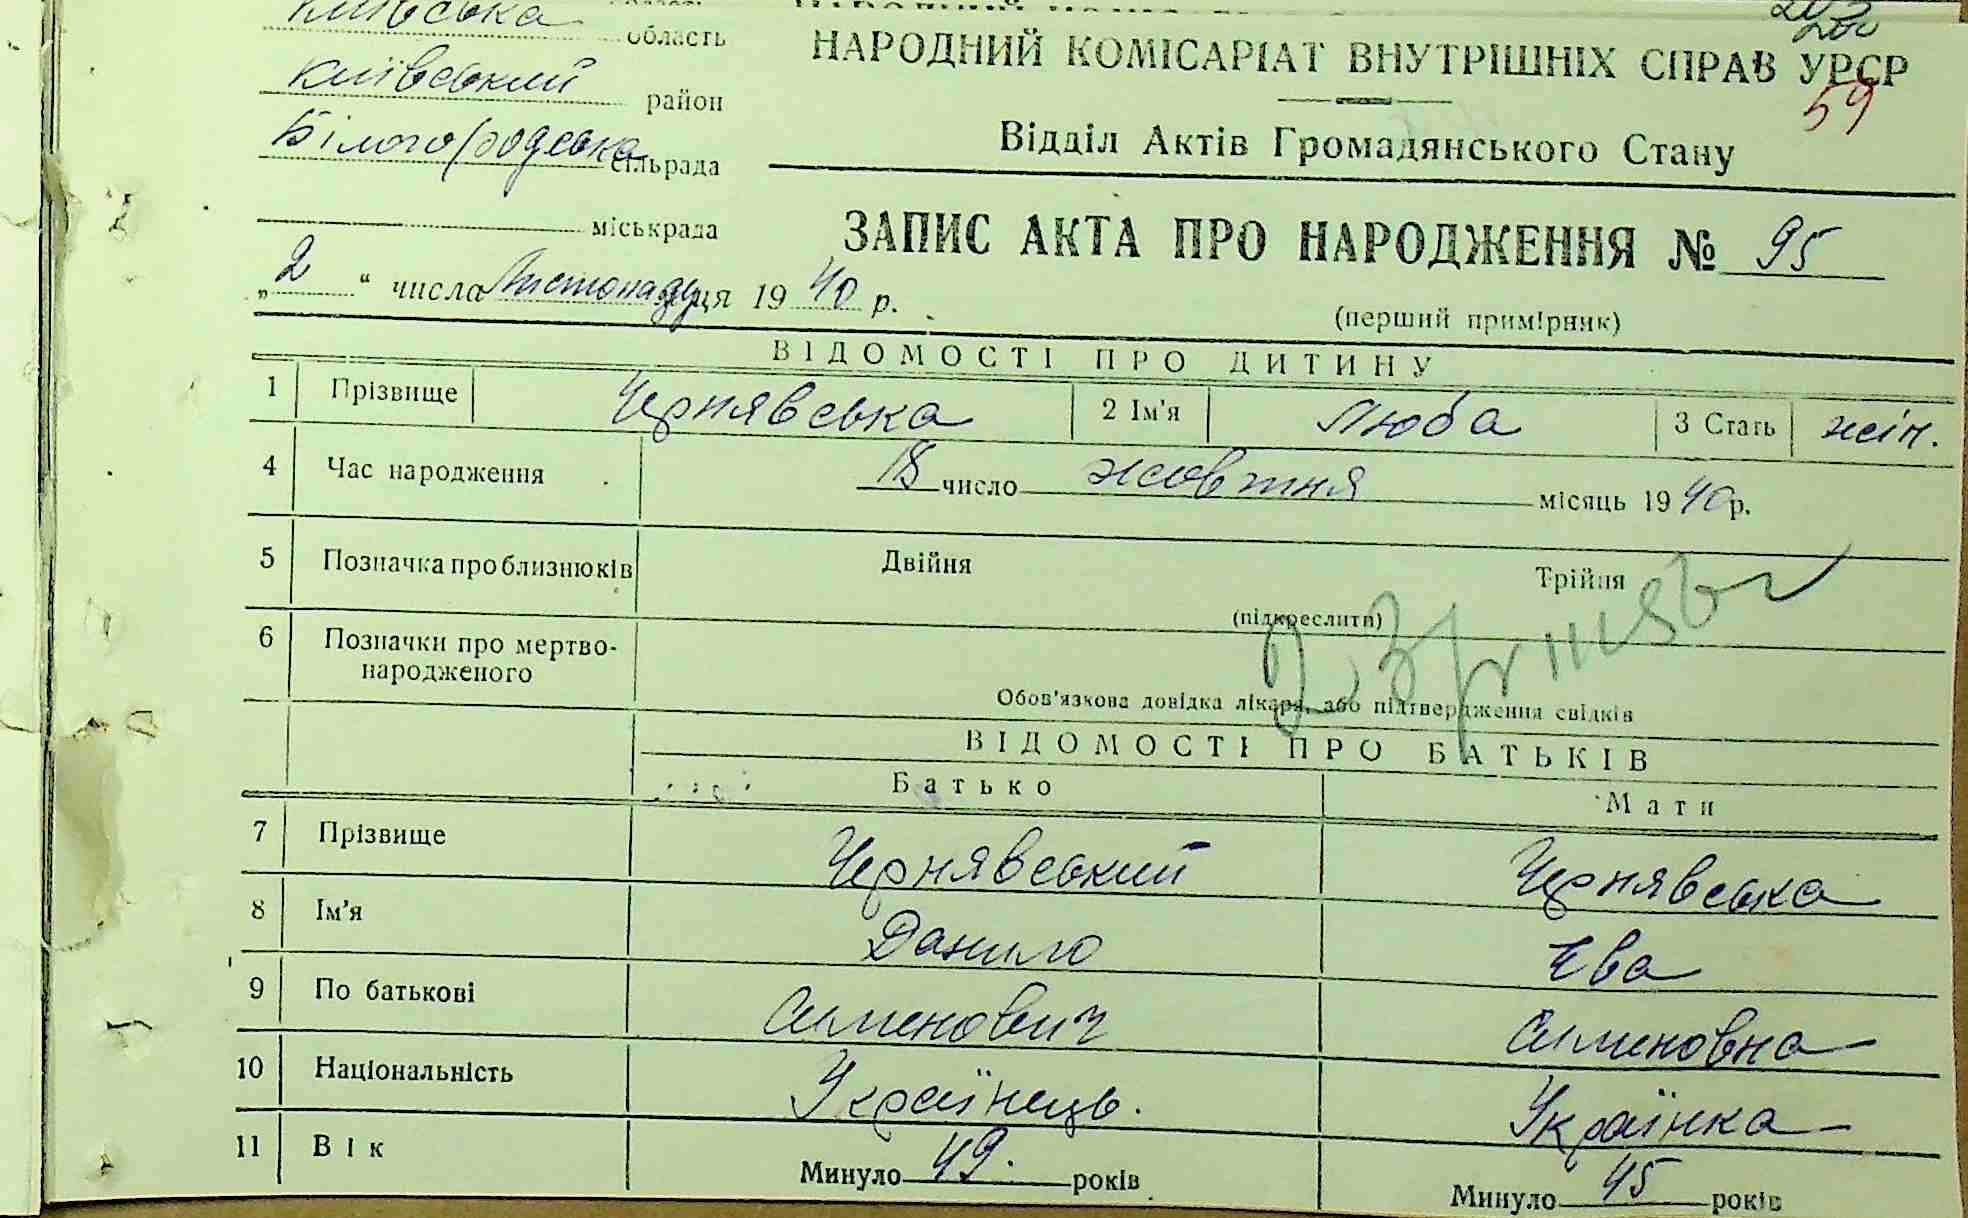 Київська область
НАРОДНИЙ КОМІСАРІАТ ВНУТРІШНІХ СПРАВ УРСР
59
Київський район
Відділ Актів Громадянського Стану
Білогородська сільрада
міськрада
ЗАПИС АКТА ПРО НАРОДЖЕННЯ № 95
„2“ числа Листопаду м-ця 1940 р.
(перший примірник)
ВІДОМОСТІ ПРО ДИТИНУ
1 Прізвище Чернявська 2 Ім'я Люба 3 Стать жін.
4 Час народження 18 число жовтня місяць 1940 р.
5 Позначка про близнюків Двійня Трійня
(підкреслити)
6 Позначки про мертво-
народженого
Обов'язкова довідка лікаря, або підтвердження свідків
ВІДОМОСТІ ПРО БАТЬКІВ
Батько Мати
7 Прізвище Чернявський Чернявська
8 Ім'я Данило Ева
9 По батькові Сименович Сименовна
10 Національність Українець. Українка
11 Вік Минуло 49. років Минуло 45 років